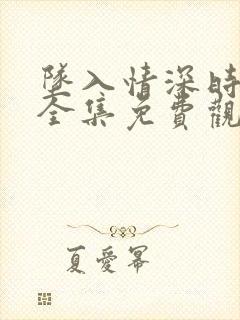 隊入情深時
全集免費觀
夏愛幂